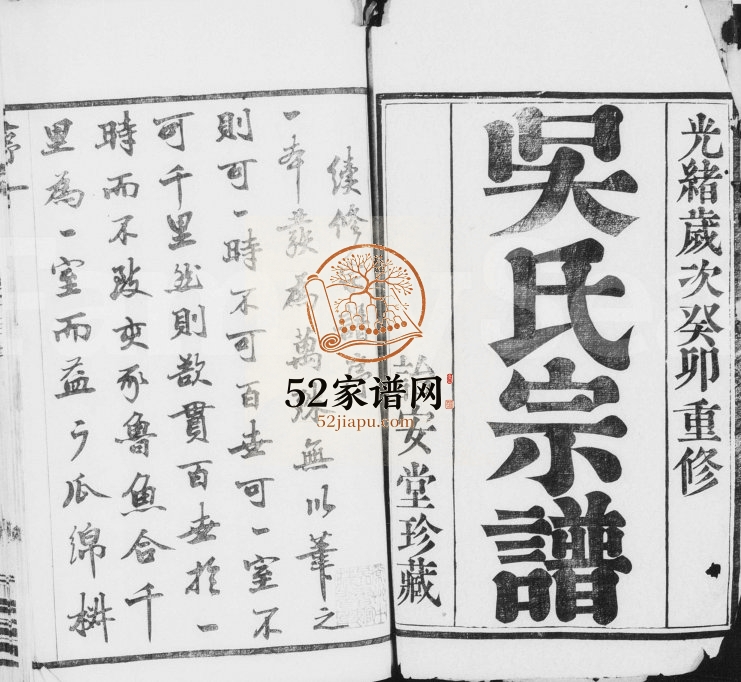 光緒歲次癸卯重修
吳氏宗譜
安堂珍藏
續修
一本發為萬殊無以筆之
則可一時不可百世可一室不
可千里然則欲貫百世於一
時而不改亥豕魯魚合千
里為一室而益瓜綿
序一
52家谱网
52jiapu.com